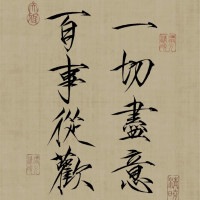 一切盡意
百事從歡